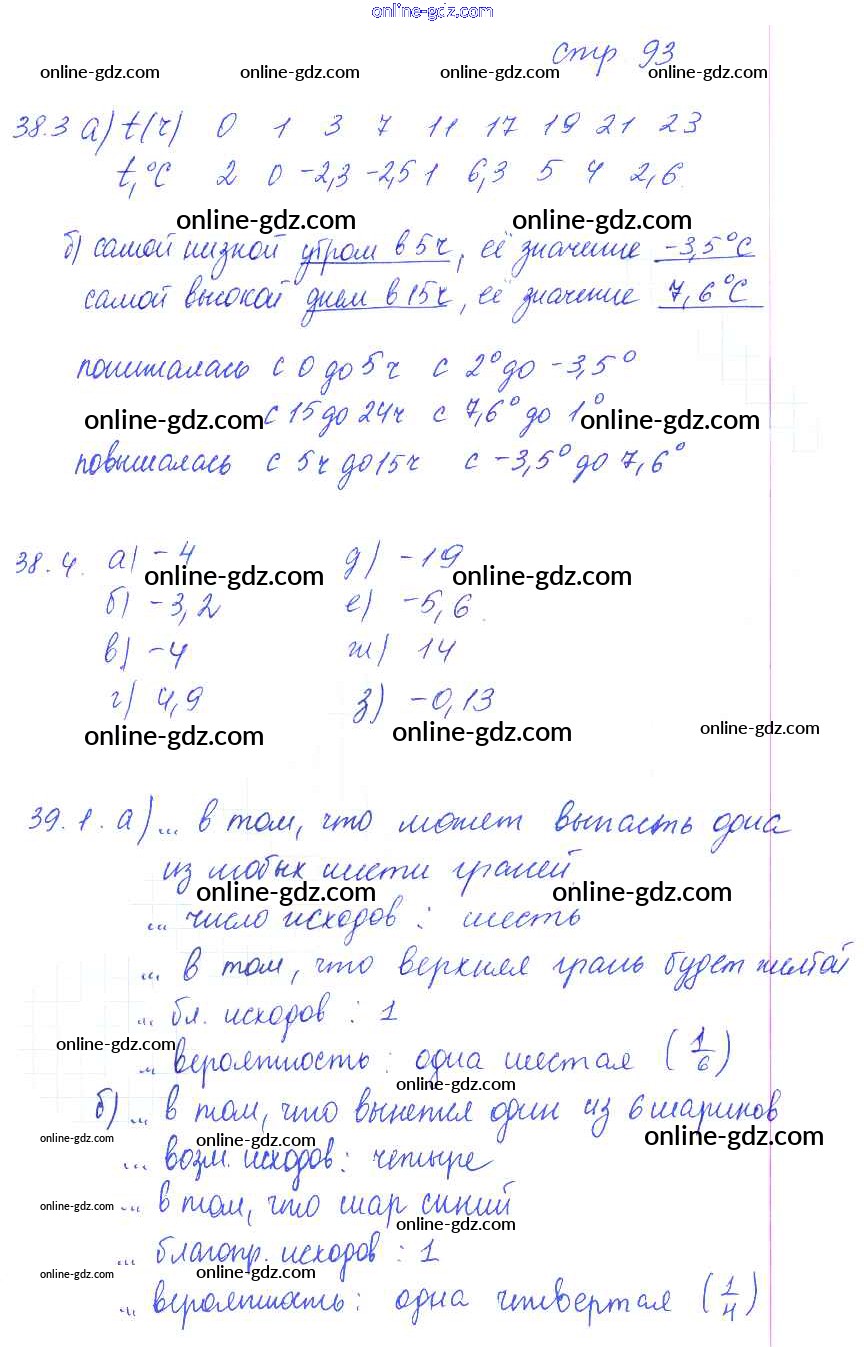 online-gdz.com
стр 93
online-gdz.com online-gdz.com online-gdz.com online-gdz.com
38.3 а) t(г) 0 1 3 7 11 17 19 21 23
t,°C 2 0 -2,3 -2,5 1 6,3 5 4 2,6.
online-gdz.com online-gdz.com
б) самой низкой утром в 5ч, её значение -3,5°C
самой высокой днем в 15ч, её значение 7,6°C
понижалась с 0 до 5ч с 2° до -3,5°
online-gdz.com с 15 до 24ч с 7,6° до 1° online-gdz.com
повышалась с 5ч до 15ч с -3,5° до 7,6°
38.4. а) -4 д) -19
online-gdz.com online-gdz.com
б) -3,2 е) -5,6.
в) -4 ж) 14
г) 4,9 з) -0,13
online-gdz.com online-gdz.com online-gdz.com
39.1. а) ... в том, что может выпасть одна
из любых шести граней
online-gdz.com online-gdz.com
... число исходов: шесть
... в том, что верхняя грань будет желтой
... бл. исходов: 1
online-gdz.com
... вероятность: одна шестая (1/6)
online-gdz.com
б) ... в том, что вынется один из 6 шариков
online-gdz.com online-gdz.com online-gdz.com
... возм. исходов: четыре
online-gdz.com ... в том, что шар синий
online-gdz.com
... благопр. исходов: 1
online-gdz.com online-gdz.com
... вероятность: одна четвертая (1/4)